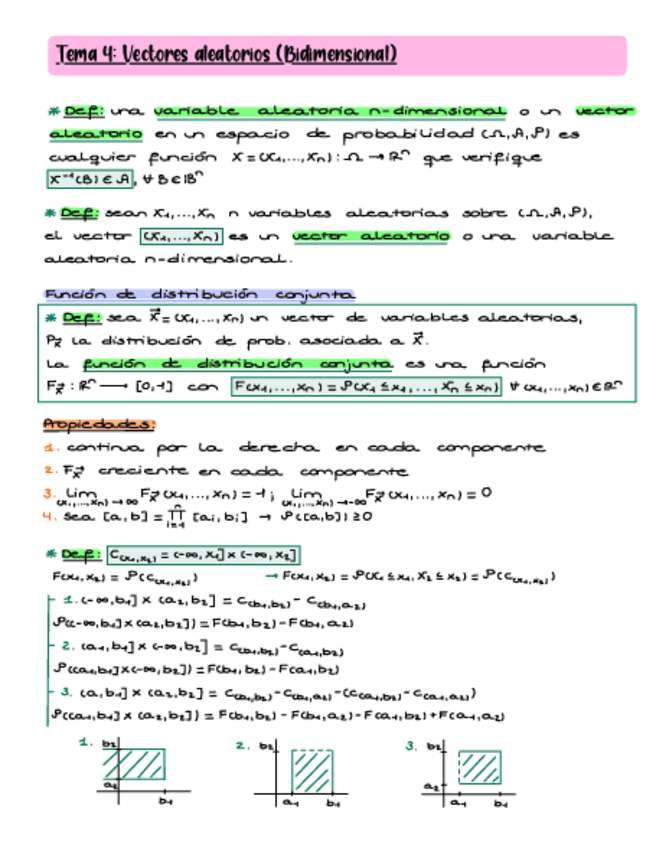 Tema 4: Vectores aleatorios (Bidimensional)
* Def: una variable aleatoria n-dimensional o un vector
aleatorio en un espacio de probabilidad (Ω,A,P) es
cualquier función X=(X₁,...,Xn): Ω → ℝⁿ que verifique
X⁻¹(B) ∈ A, ∀ B ∈ 𝔹ⁿ
* Def: sean X₁,...,Xn n variables aleatorias sobre (Ω,A,P),
el vector (X₁,...,Xn) es un vector aleatorio o una variable
aleatoria n-dimensional.
Función de distribución conjunta
* Def: sea X⃗=(X₁,...,Xn) un vector de variables aleatorias,
P_X⃗ la distribución de prob. asociada a X⃗.
La función de distribución conjunta es una función
F_X⃗ : ℝⁿ ⟶ [0,1] con F(x₁,...,xn) = P(X₁ ≤ x₁,..., Xn ≤ xn) ∀ (x₁,...,xn) ∈ ℝⁿ
Propiedades:
1. continua por la derecha en cada componente
2. F_X⃗ creciente en cada componente
3. Lim (x₁,...,xn)→∞ F_X⃗ (x₁,...,xn) = 1; Lim (x₁,...,xn)→-∞ F_X⃗ (x₁,...,xn) = 0
4. sea [a,b] = ∏ i=1 n [ai,bi] → P([a,b]) ≥ 0
* Def: C(x₁,x₂) = (-∞, x₁] × (-∞, x₂]
F(x₁,x₂) = P(C(x₁,x₂)) → F(x₁,x₂) = P(X₁ ≤ x₁, X₂ ≤ x₂) = P(C(x₁,x₂))
1. (-∞,b₁] × (a₂,b₂] = C(b₁,b₂) - C(b₁,a₂)
P((-∞,b₁] × (a₂,b₂]) = F(b₁,b₂) - F(b₁,a₂)
2. (a₁,b₁] × (-∞,b₂] = C(b₁,b₂) - C(a₁,b₂)
P((a₁,b₁] × (-∞,b₂]) = F(b₁,b₂) - F(a₁,b₂)
3. (a,b₁] × (a₂,b₂] = C(b₁,b₂) - C(b₁,a₂) - (C(a₁,b₂) - C(a₁,a₂))
P((a₁,b₁] × (a₂,b₂]) = F(b₁,b₂) - F(b₁,a₂) - F(a₁,b₂) + F(a₁,a₂)
1. b₂ a₂ b₁
2. b₂ a₁ b₁
3. b₂ a₂ a₁ b₁